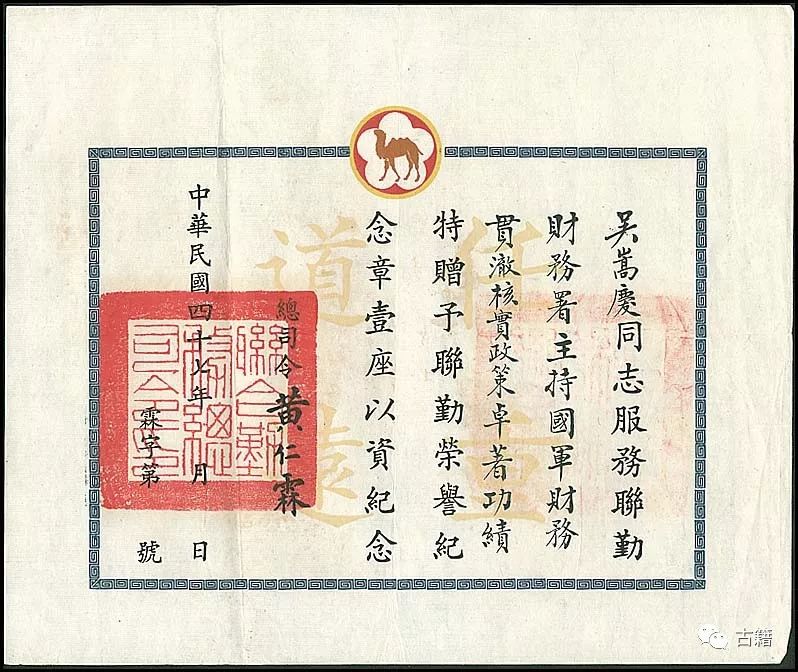 吴嵩慶同志服務聯勤
財務署主持國軍財務
貫澈核實政策卓著功績
特贈予聯勤榮譽紀
念章壹座以資紀念
總司令 黃仁霖
中華民國四十七年 月 日
霖字第 號
任重
道遠
聯合勤
務總
司令部
古籍